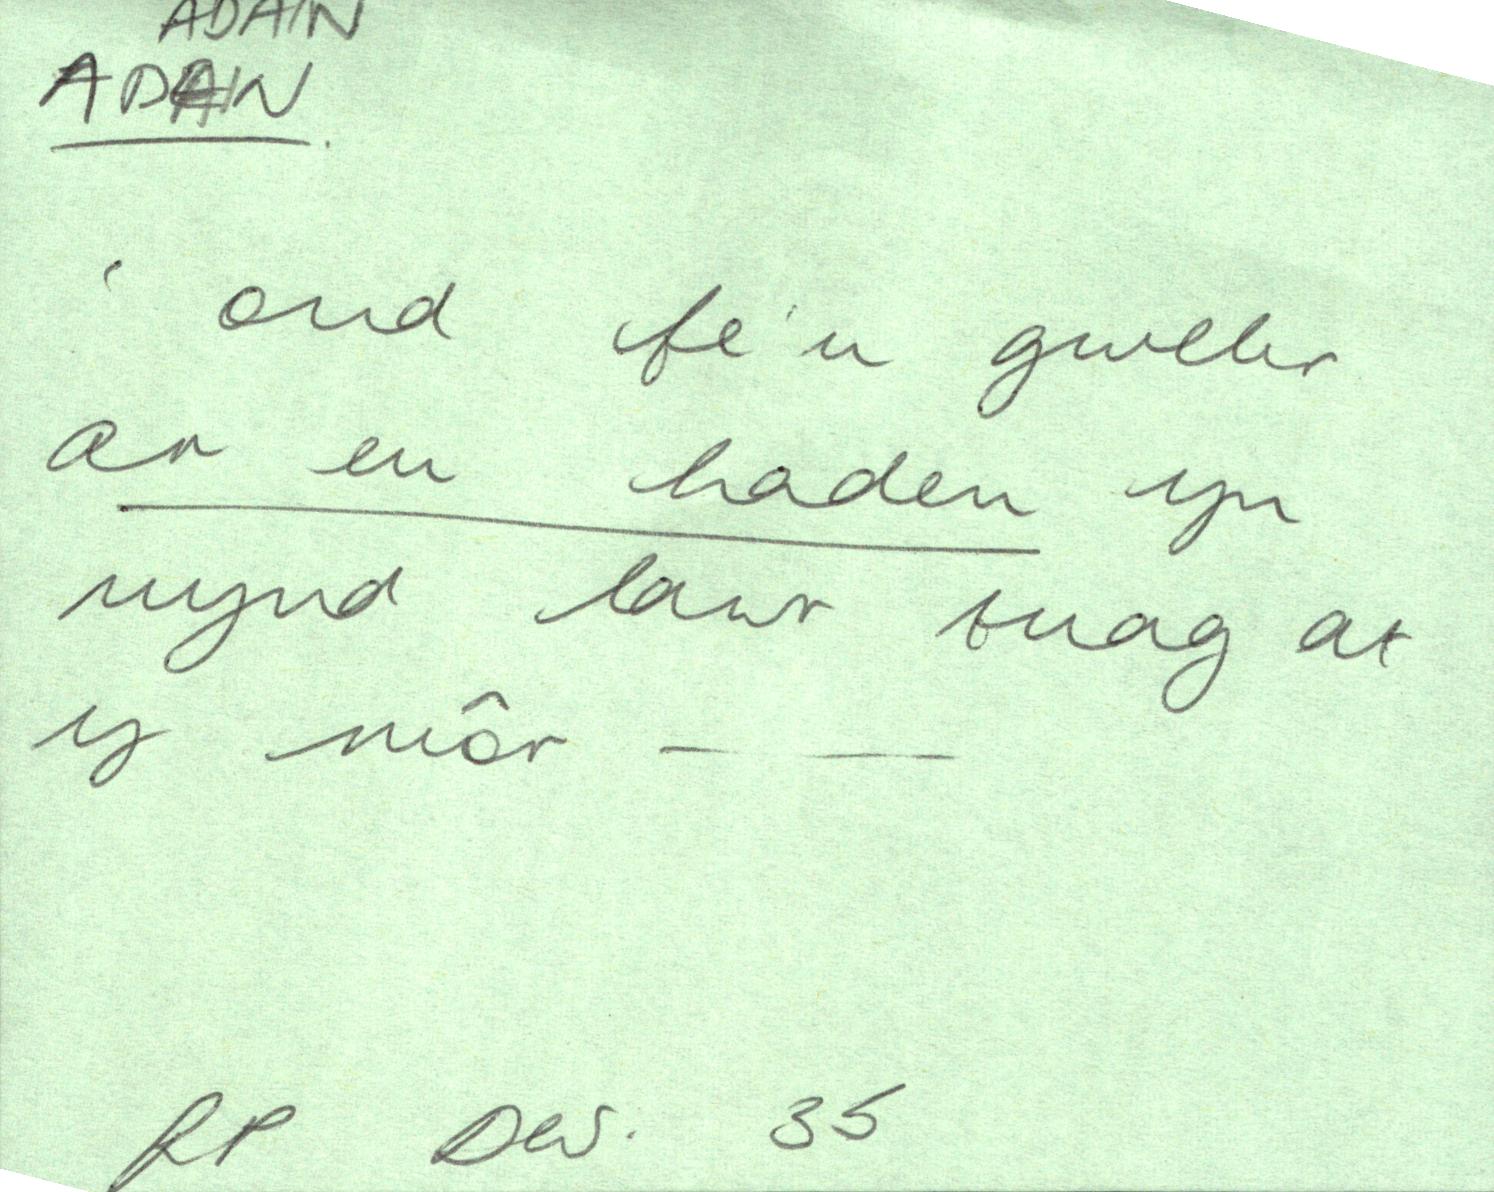 ADAIN
ADAIN.
' ond fe'u gweler
ar eu haden yn
mynd lawr tuag at
y môr — —
RP Dew. 35